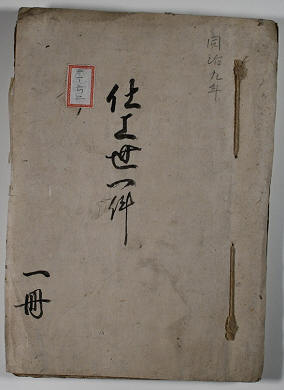 同治九年
仕上世一件
一冊